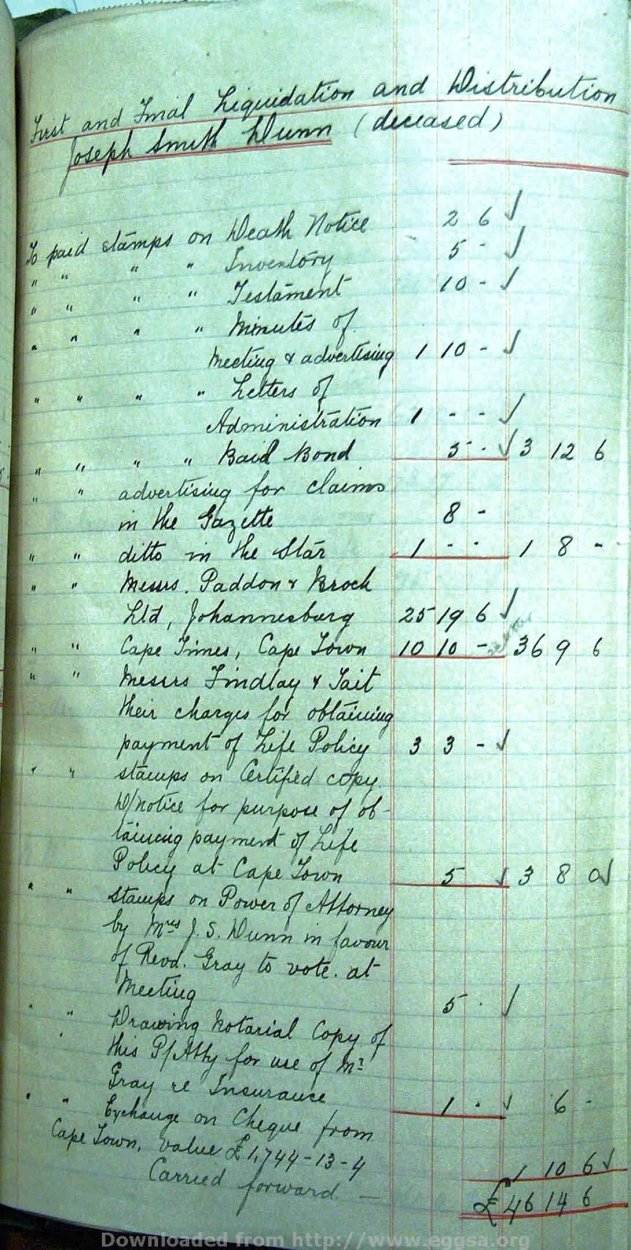 First and Final Liquidation and Distribution
Joseph Smith Dunn (deceased)
To paid stamps on Death Notice 2 6 ✓
" " " " Inventory 5 - ✓
" " " " Testament 10 - ✓
" " " " Minutes of
Meeting & advertising 1 10 - ✓
" " " " Letters of
Administration 1 - - ✓
" " " " Baid Bond 5 - ✓ 3 12 6
" " advertising for claims
in the Gazette 8 -
" " ditto in the Star 1 - - 1 8 -
" " Messrs. Paddon & Brock
Ltd, Johannesburg 25 19 6 ✓
" " Cape Times, Cape Town 10 10 - 36 9 6
" " Messrs Findlay & Tait
their charges for obtaining
payment of Life Policy 3 3 - ✓
" " stamps on Certified copy
D/Notice for purpose of ob-
taining payment of Life
Policy at Cape Town 5 ✓ 3 8 0 ✓
" " stamps on Power of Attorney
by Mrs J. S. Dunn in favour
of Revd. Gray to vote. at
Meeting 5 - ✓
" " Drawing Notarial Copy of
this P/Atty for use of Mr
Gray re Insurance 1 - ✓ 6 -
" " Exchange on Cheque from
Cape Town, value £1,744-13-4 1 10 6 ✓
Carried forward — £46 14 6
Downloaded from http://www.eggsa.org